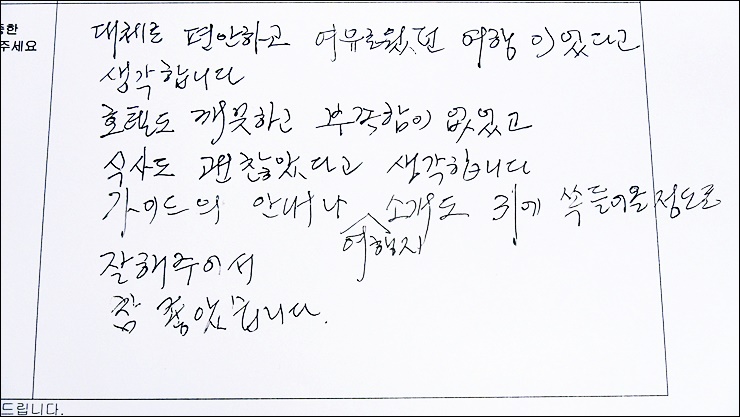 중한
주세요
대체로 편안하고 여유로웠던 여행이었다고
생각합니다
호텔도 깨끗하고 부족함이 없었고
식사도 괜찮았다고 생각합니다
가이드의 안내나 여행지 소개도 귀에 쏙 들어올 정도로
잘해주어서
참 좋았습니다.
드립니다.